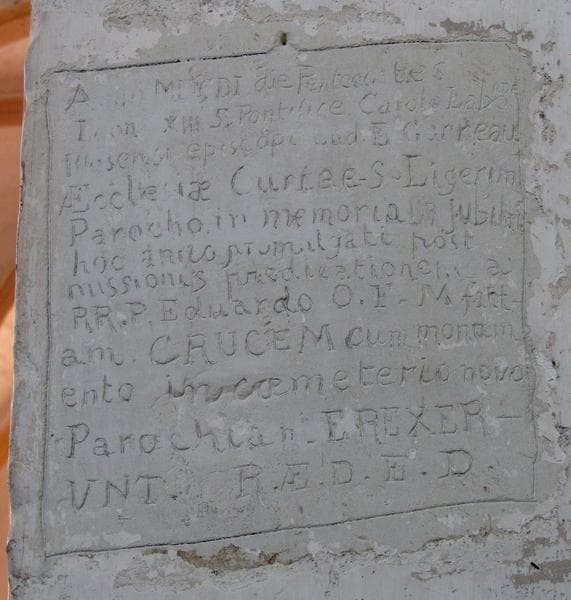 A MCMI die Pentecostes
Leon XIII S. Pontifice Carolo Lab
episcopi and E Garreau
Ecclesiæ Curtae-S-Ligerim
Parocho, in memoriam jubilii
hoc anno promulgati post
missionis predicationem a
RR.P. Eduardo O.F.M. fact-
am. CRUCEM cum monam
ento in cœmeterio novo
Parochiani EREXER-
UNT. R.Æ.D.E.D.